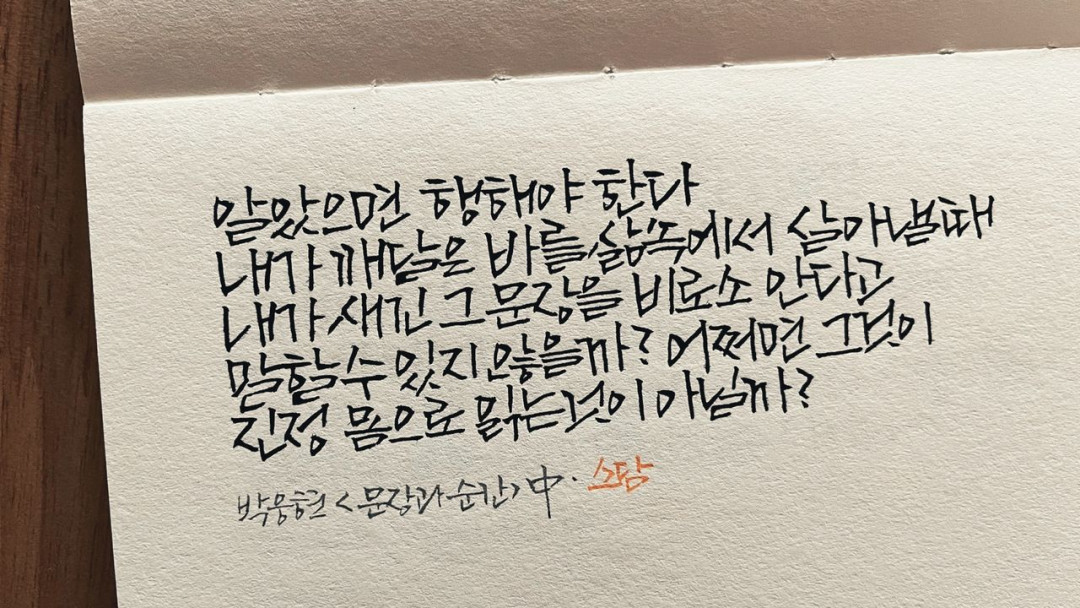 알았으면 행해야 한다
내가 깨닫은 바를 삶속에서 살아낼때
내가 새긴 그 문장을 비로소 안다고
말할 수 있지 않을까? 어쩌면 그것이
진정 몸으로 읽는것이 아닐까?
박웅현 <문장과 순간> 中. 소담